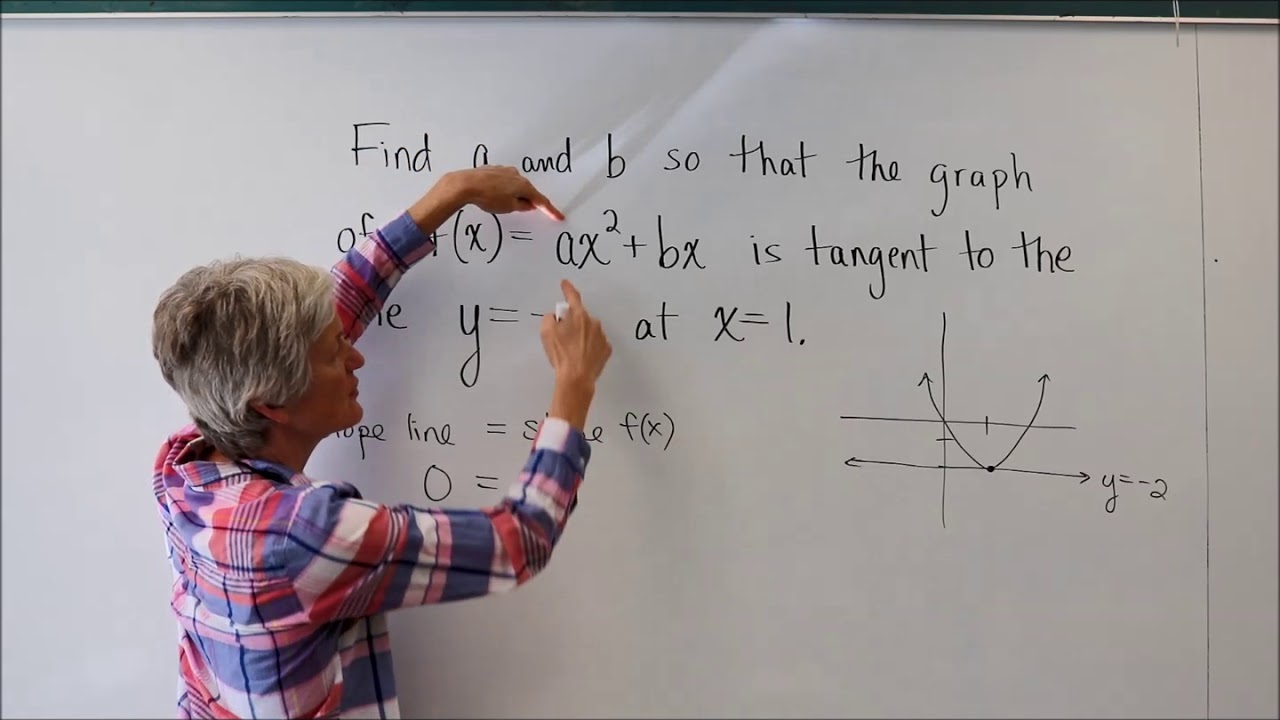 Find a and b so that the graph
of (x) = ax² + bx is tangent to the
y = - at x = 1.
line = f(x)
0 =
y = -2